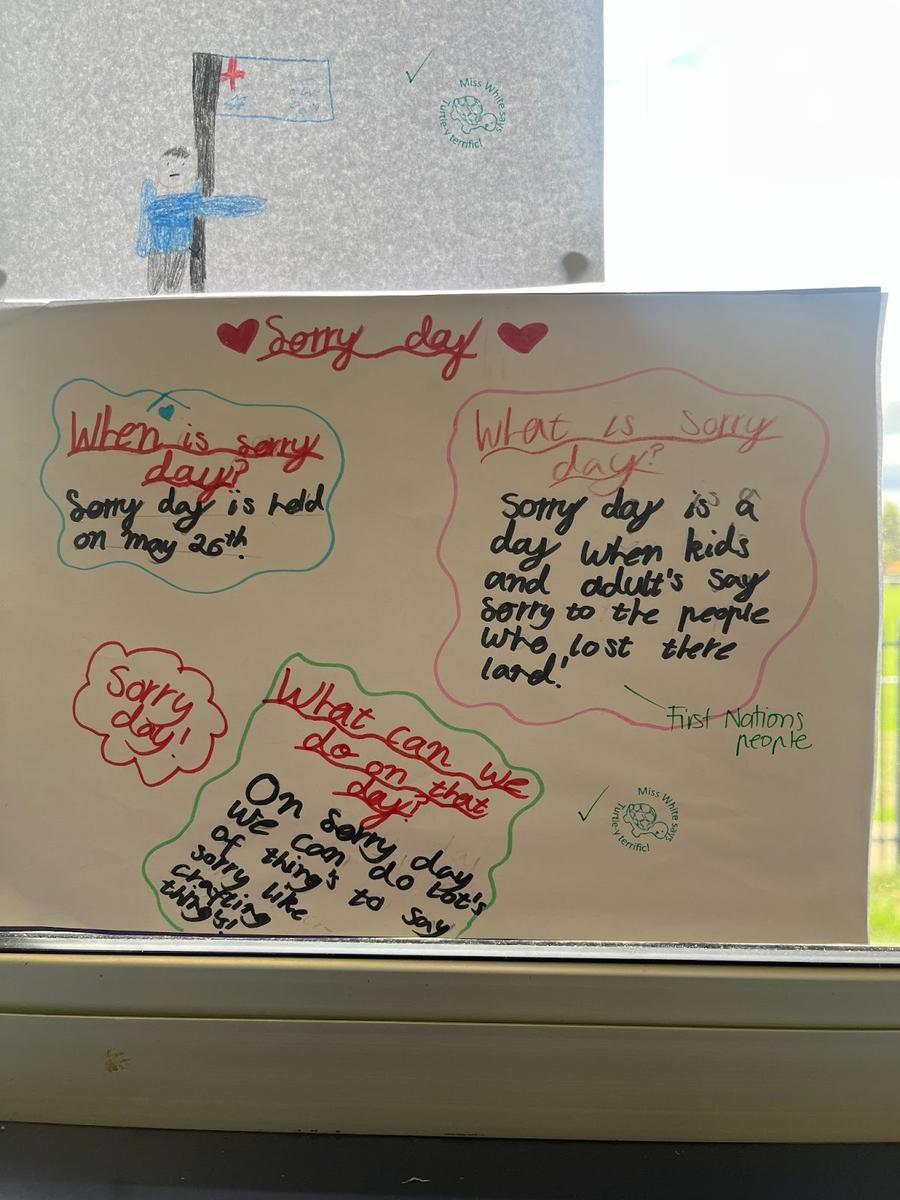 Miss White says
Turtle-y terrific!
Sorry day
When is sorry
day!?
Sorry day is held
on may 26th.
What is Sorry
day?
Sorry day is a
day when kids
and adult's say
sorry to the people
who lost there
land!
First Nations
people
Sorry
day!
What can we
do on that
day!?
On sorry day
we can do lot's
of thing's to say
sorry like
crafting
things!
Miss White says
Turtle-y terrific!